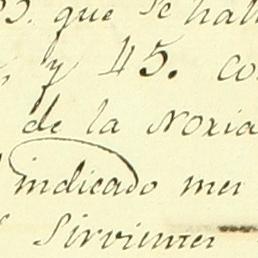 que se hall
y 45. co
de la Noxia
indicado mes
Sirvientes